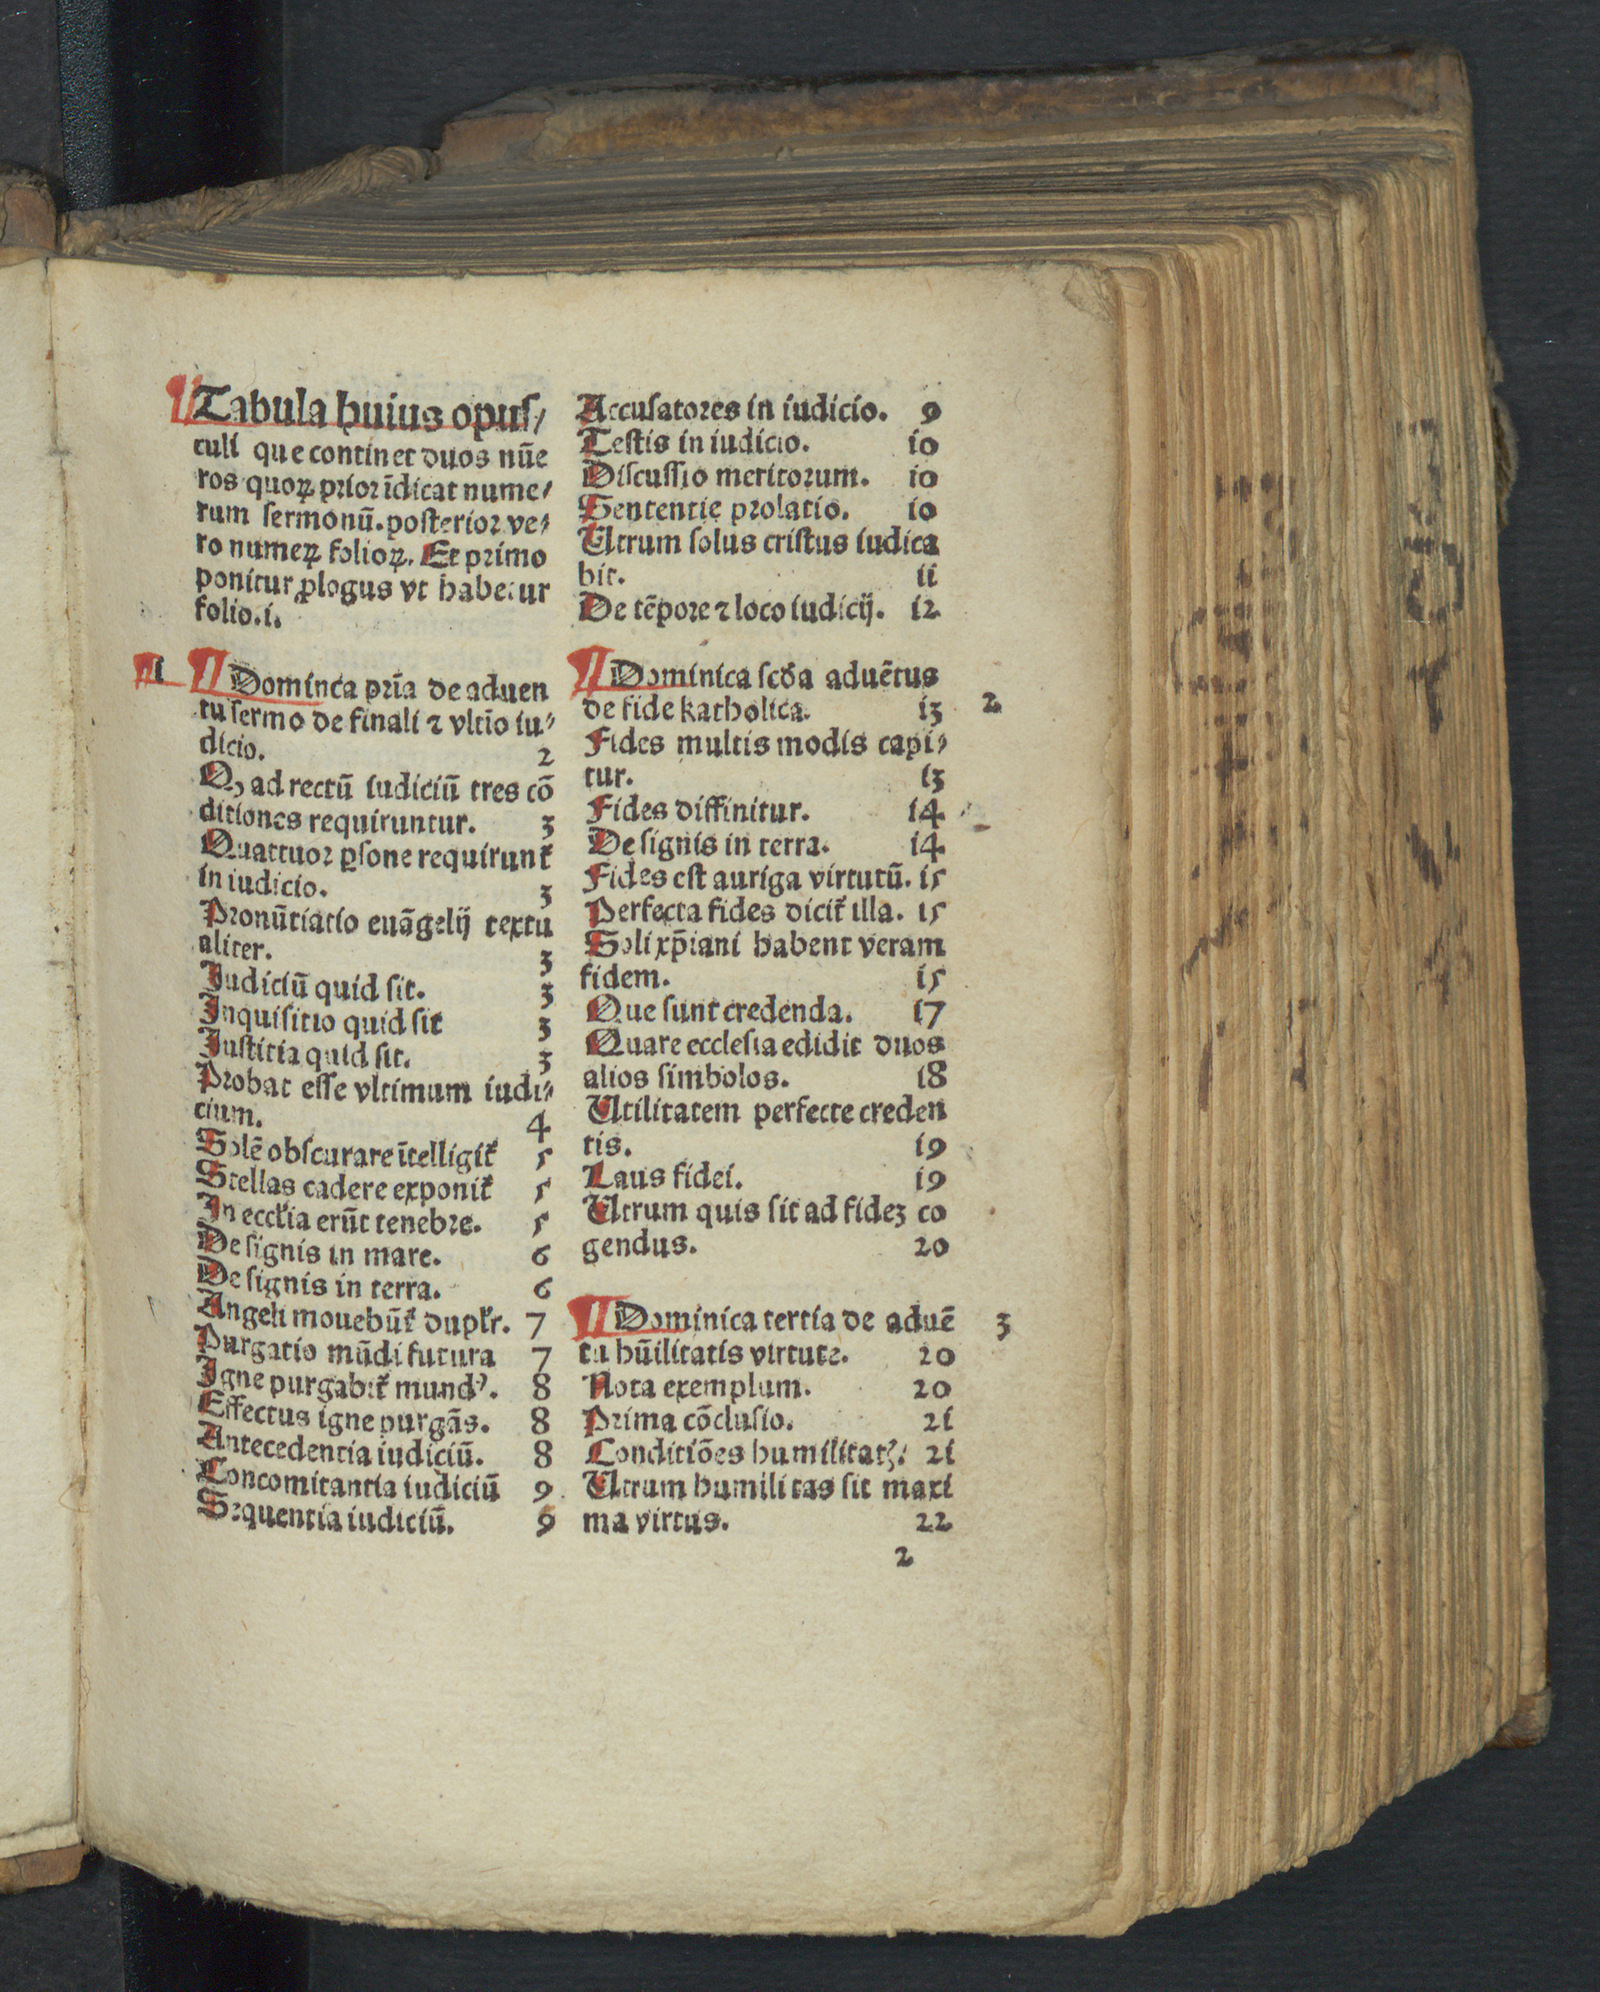 Tabula huius opus/
culi que continet duos nūe
ros quoꝝ prior īdicat nume/
rum sermonū. posterior ve/
ro numeꝝ folioꝝ. Et primo
ponitur ꝓlogus vt habetur
folio.i.
1
Dominica prīa de aduen
tu sermo de finali ⁊ vltīo iu/
dicio. 2
Qꝫ ad rectū iudiciū tres cō
ditiones requiruntur. 3
Quattuor ꝑsone requirunt᷑
in iudicio. 3
Pronūtiatio euāgelij textu
aliter. 3
Iudiciū quid sit. 3
Inquisitio quid sit 3
Iustitia quid sit. 3
Probat esse vltimum iudi/
cium. 4
Solē obscurare ītelligit᷑ 5
Stellas cadere exponit᷑ 5
In eccl'ia erūt tenebre. 5
De signis in mare. 6
De signis in terra. 6
Angeli mouebūt᷑ dupl'r. 7
Purgatio mūdi futura 7
Igne purgabit᷑ mundꝰ. 8
Effectus igne purgās. 8
Antecedentia iudiciū. 8
Concomitantia iudiciū 9
Sequentia iudiciū. 9
Accusatores in iudicio. 9
Testis in iudicio. 10
Discussio meritorum. 10
Sententie prolatio. 10
Utrum solus cristus iudica
bit. 11
De tēpore ⁊ loco iudicij. 12
Dominica scďa aduētus
de fide katholica. 13 2
Fides multis modis capi/
tur. 13
Fides diffinitur. 14
De signis in terra. 14
Fides est auriga virtutū. 15
Perfecta fides dicit᷑ illa. 15
Soli xp̄iani habent veram
fidem. 15
Que sunt credenda. 17
Quare ecclesia edidit duos
alios simbolos. 18
Utilitatem perfecte creden
tis. 19
Laus fidei. 19
Utrum quis sit ad fideꝫ co
gendus. 20
Dominica tertia de aduē 3
tu hūilitatis virtute. 20
Nota exemplum. 20
Prima cōclusio. 21
Conditiōes humilitatꝭ. 21
Utrum humilitas sit maxi
ma virtus. 22
2